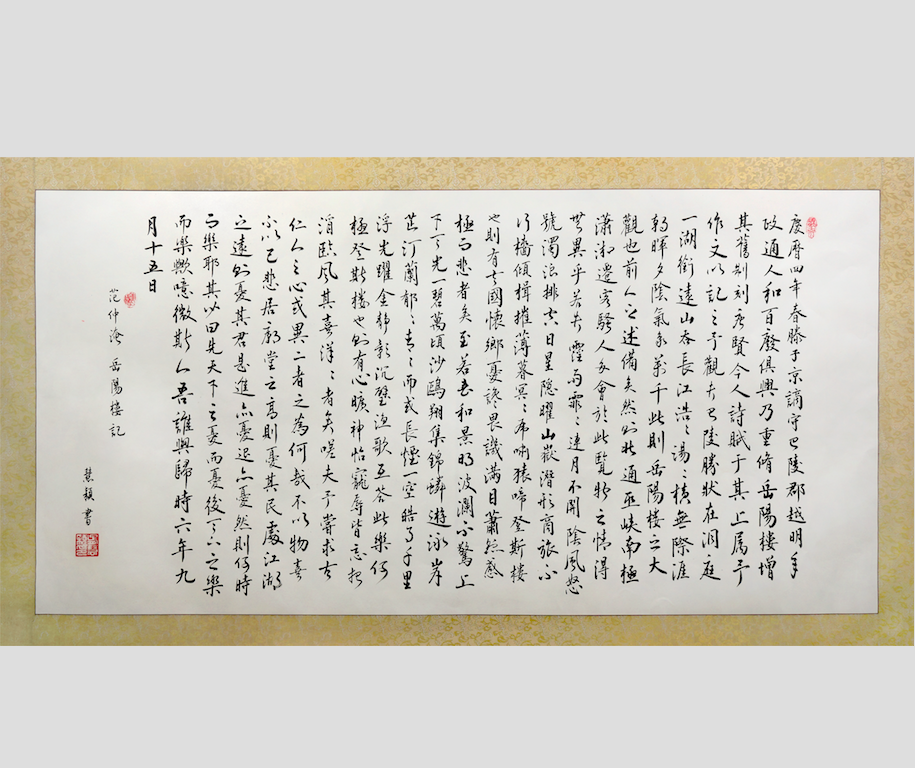 慶曆四年春滕子京謫守巴陵郡越明年
政通人和百廢俱興乃重脩岳陽樓增
其舊制刻唐賢今人詩賦于其上属予
作文以記之予觀夫巴陵勝狀在洞庭
一湖銜遠山吞長江浩〻湯〻橫無際涯
朝暉夕陰氣象萬千此則岳陽樓之大
觀也前人之述備矣然則北通巫峽南極
瀟湘遷客騷人多會於此覽物之情得
無異乎若夫霪雨霏〻連月不開陰風怒
號濁浪排空日星隱曜山嶽潛形商旅不
行檣傾楫摧薄暮冥〻虎嘯猿啼登斯樓
也則有去國懷鄉憂讒畏譏滿目蕭然感
極而悲者矣至若春和景明波瀾不驚上
下天光一碧萬頃沙鷗翔集錦鱗遊泳岸
芷汀蘭郁〻青〻而或長煙一空皓月千里
浮光躍金靜影沉璧漁歌互答此樂何
極登斯樓也則有心曠神怡寵辱皆忘把
酒臨風其喜洋〻者矣嗟夫予嘗求古
仁人之心或異二者之為何哉不以物喜
不以己悲居廟堂之高則憂其民處江湖
之遠則憂其君是進亦憂退亦憂然則何時
而樂耶其必曰先天下之憂而憂後天下之樂
而樂歟噫微斯人吾誰與歸時六年九
月十五日
范仲淹 岳陽樓記
慧穎書